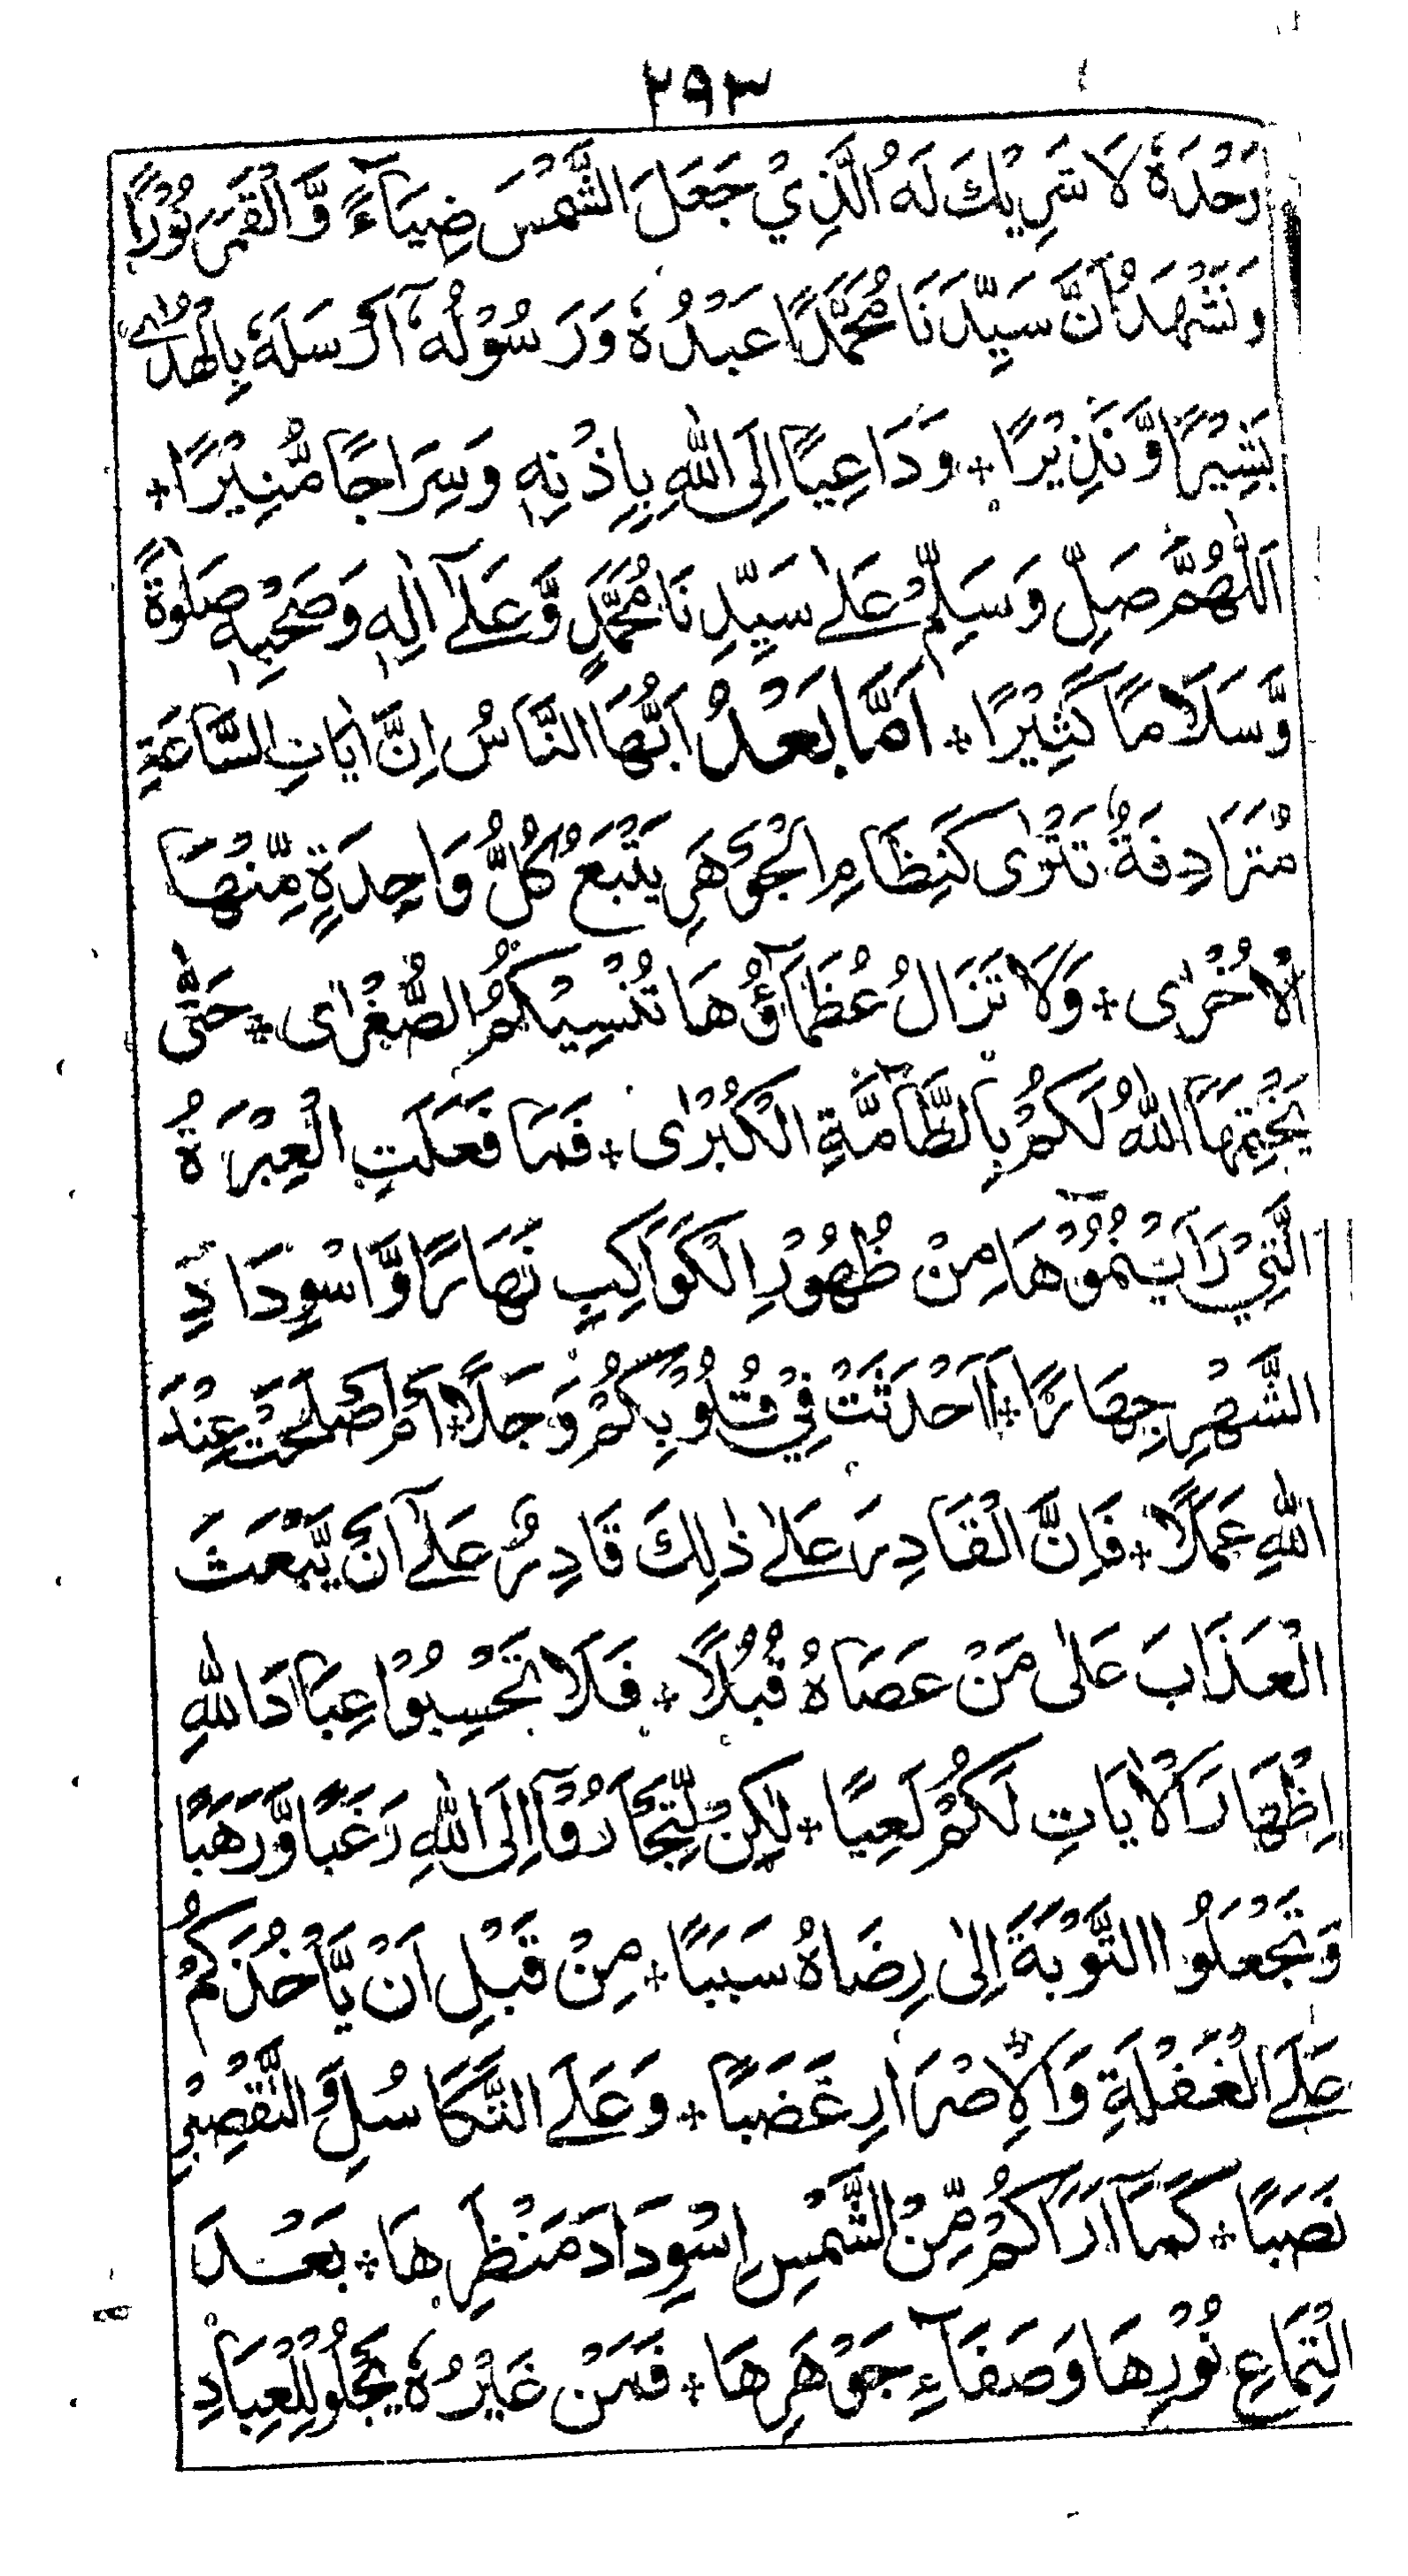 ٢٩٣
وَحْدَهٗ لَا شَرِيْكَ لَهُ الَّذِيْ جَعَلَ الشَّمْسَ ضِيَآءً وَّالْقَمَرَ نُوْرًا
وَنَشْهَدُ اَنَّ سَيِّدَنَا مُحَمَّدًا عَبْدُهٗ وَرَسُوْلُهٗ اَرْسَلَهٗ بِالْهُدٰى
بَشِيْرًا وَّنَذِيْرًا + وَدَاعِيًا اِلَى اللّٰهِ بِاِذْنِهٖ وَسِرَاجًا مُّنِيْرًا +
اَللّٰهُمَّ صَلِّ وَسَلِّمْ عَلٰى سَيِّدِنَا مُحَمَّدٍ وَّعَلٰٓى اٰلِهٖ وَصَحْبِهٖ صَلٰوةً
وَّسَلَامًا كَثِيْرًا + اَمَّا بَعْدُ اَيُّهَا النَّاسُ اِنَّ اٰيَاتِ السَّاعَةِ
مُتَرَادِفَةٌ تَتْرٰى كَنِظَامِ الْجَوْهَرِ يَتْبَعُ كُلُّ وَاحِدَةٍ مِّنْهَا
الْاُخْرٰى + وَلَا تَزَالُ عُظَمَآؤُهَا تُنْسِيْكُمُ الصُّغْرٰى + حَتّٰى
يَخْتِمَهَا اللّٰهُ لَكُمْ بِالطَّآمَّةِ الْكُبْرٰى + فَمَا فَعَلَتِ الْعِبْرَةُ
الَّتِيْ رَاَيْتُمُوْهَا مِنْ ظُهُوْرِ الْكَوَاكِبِ نَهَارًا وَّاسْوِدَادِ
الشَّهْرِ جِهَارًا + اَاَحْدَثَتْ فِيْ قُلُوْبِكُمْ وَجَلًا + اَمْ اَصْلَحَتْ عِنْدَ
اللّٰهِ عَمَلًا + فَاِنَّ الْقَادِرَ عَلٰى ذٰلِكَ قَادِرٌ عَلٰٓى اَنْ يَّبْعَثَ
الْعَذَابَ عَلٰى مَنْ عَصَاهُ قُبُلًا + فَلَا تَحْسِبُوْا عِبَادَ اللّٰهِ
اِظْهَارَ الْاٰيَاتِ لَكُمْ لَعِبًا + لٰكِنْ لِّتَجْاَرُوْٓا اِلَى اللّٰهِ رَغَبًا وَّرَهَبًا
وَتَجْعَلُوا التَّوْبَةَ اِلٰى رِضَاهُ سَبَبًا + مِنْ قَبْلِ اَنْ يَّاْخُذَكُمْ
عَلَى الْغَفْلَةِ وَالْاِصْرَارِ غَضَبًا + وَعَلَى التَّكَاسُلِ وَالتَّقْصِيْرِ
نَصَبًا + كَمَآ اَرَاكُمْ مِّنَ الشَّمْسِ اِسْوِدَادَ مَنْظَرِهَا + بَعْدَ
الْتِمَاعِ نُوْرِهَا وَصَفَآءِ جَوْهَرِهَا + فَمَنْ غَيْرُهٗ يَجْلُوْ لِلْعِبَادِ